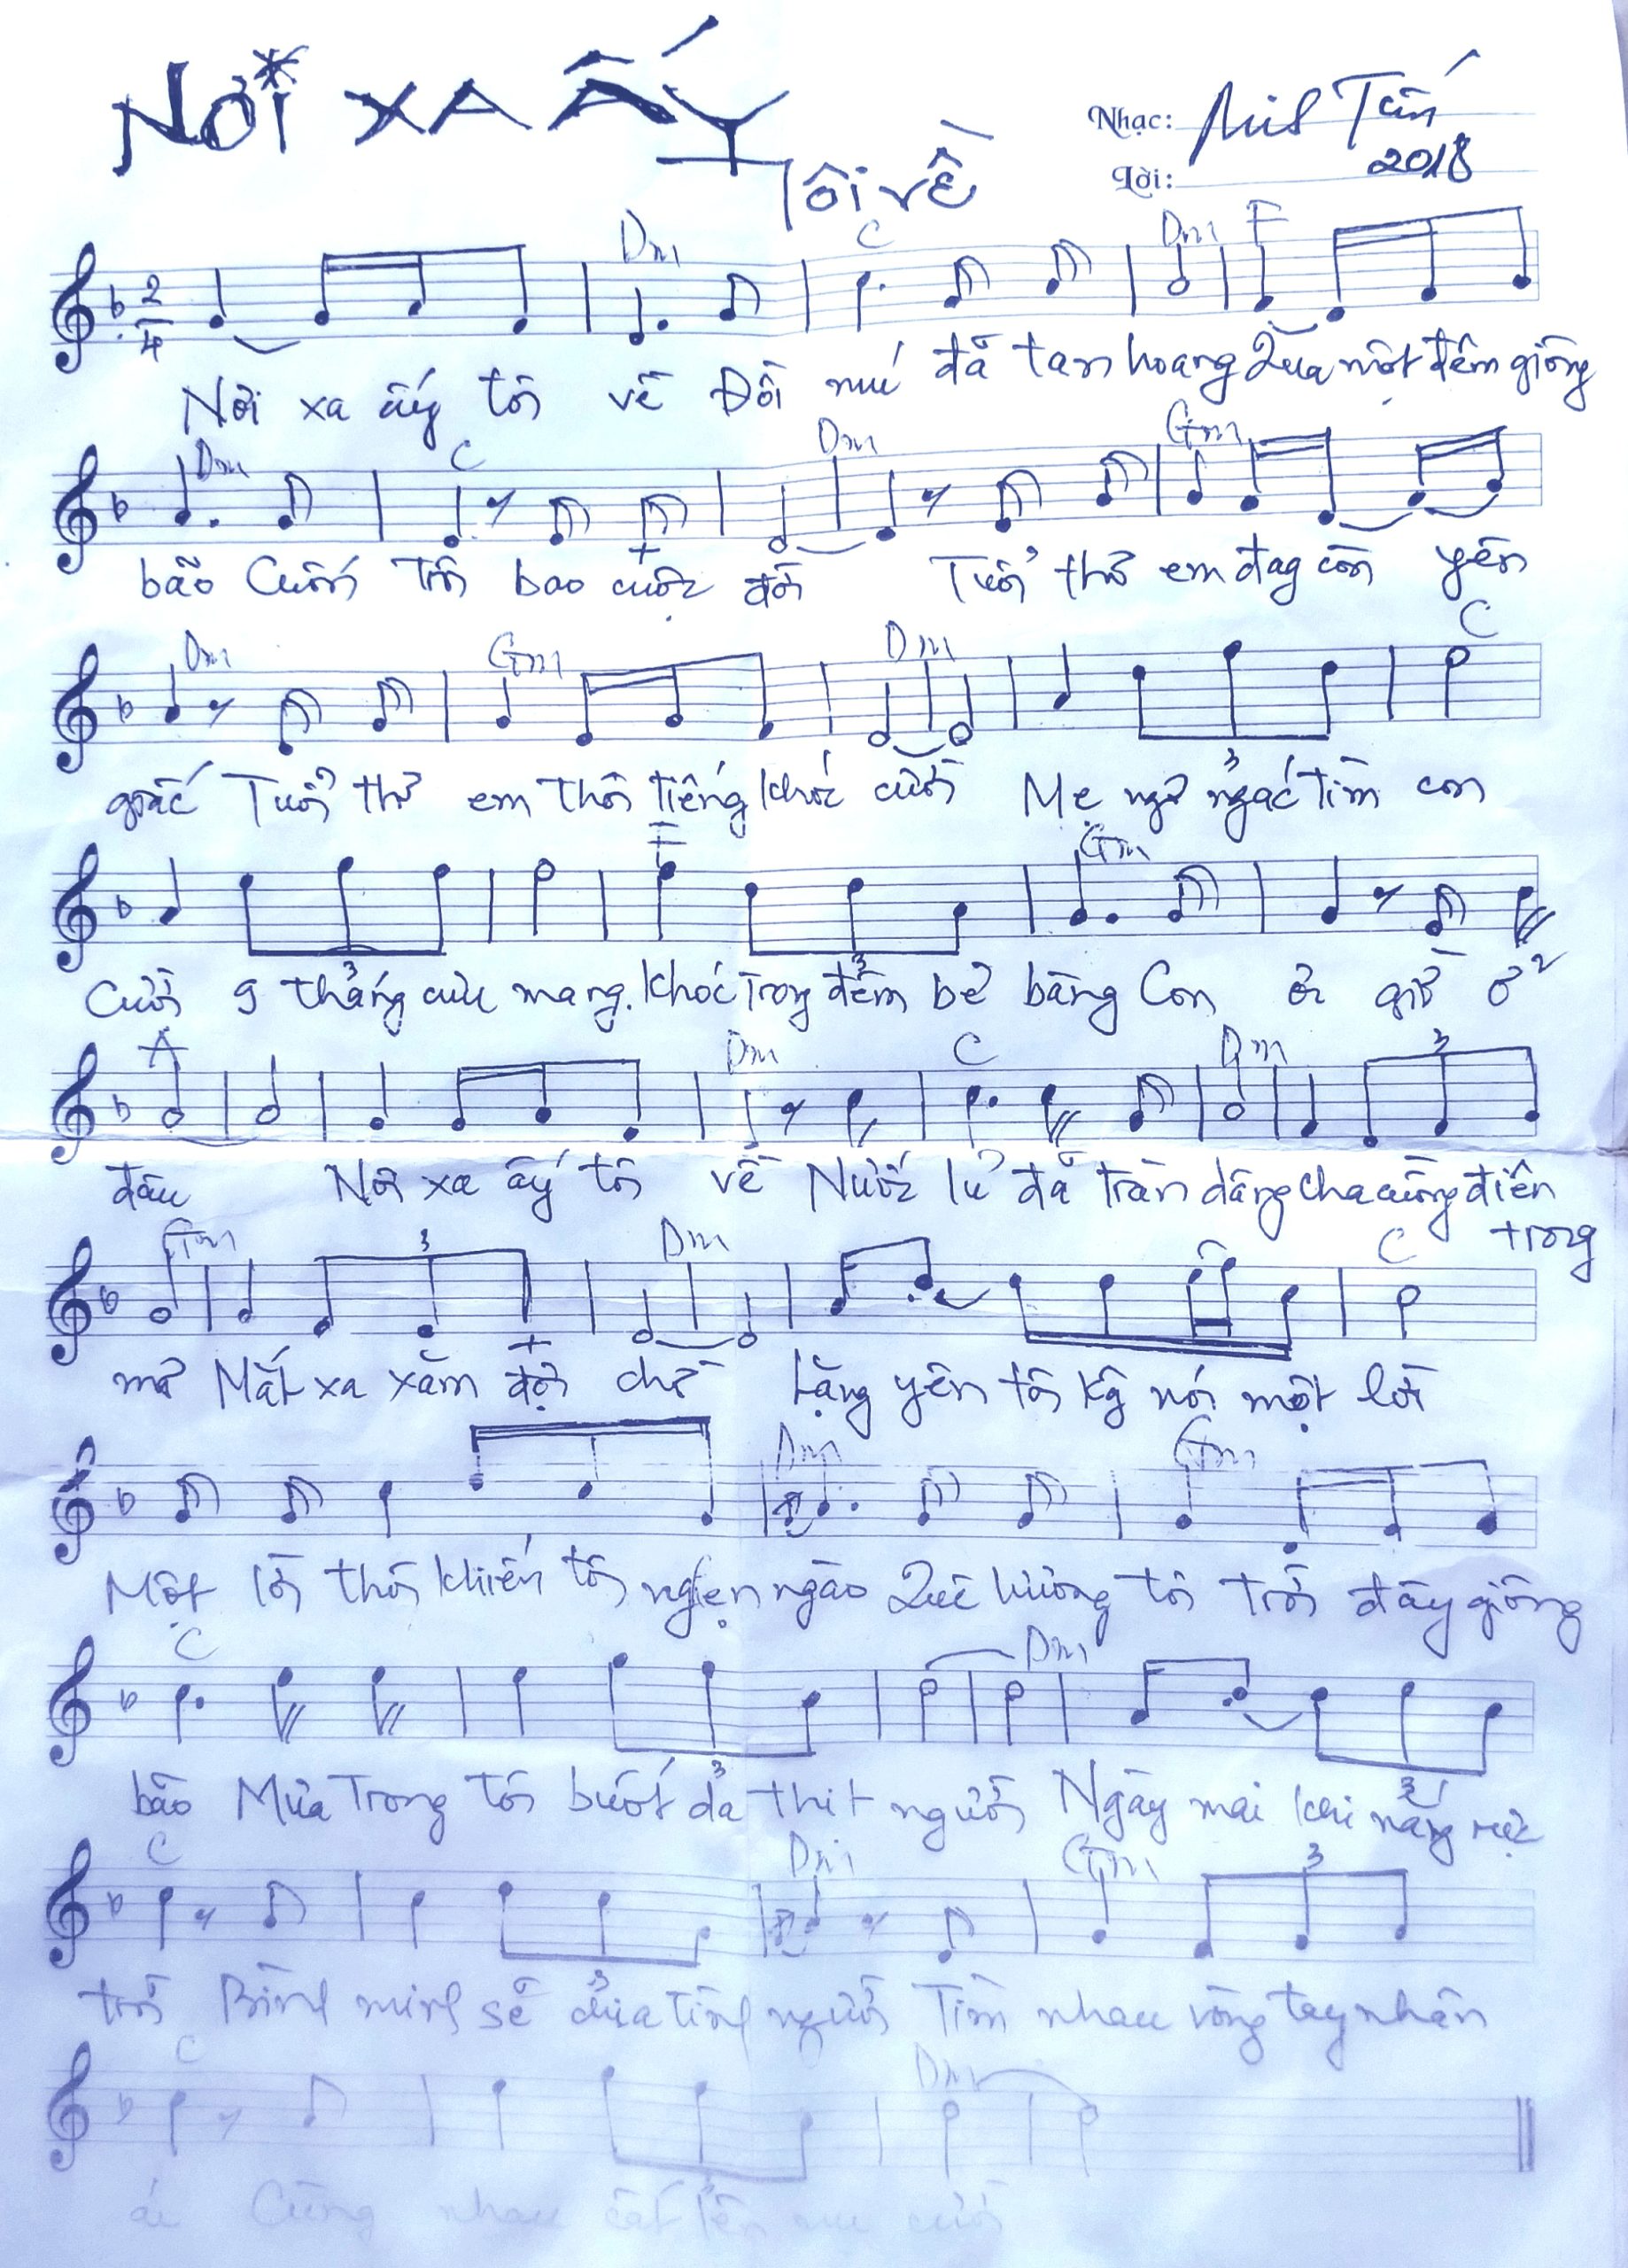 NƠI XA ẤY
Tôi về
Nhạc:
Lời:
2018
Dm C Dm F
2
4
Nơi xa ấy tôi về Đồi núi đã tan hoang Qua một đêm giông
Dm C Dm Gm
bão Cuốn trôi bao cuộc đời Tuổi thơ em đag còn yên
Dm Gm Dm C
giấc Tuổi thơ em thôi tiếng khóc cười Mẹ ngơ ngác tìm con
3
F Gm
Cười 9 tháng cưu mang. Khóc trong đêm bẽ bàng Con ơi giờ ở
3 3
A Dm C Dm 3
đâu Nơi xa ấy tôi về Nước lũ đã tràn dâng cha cuồng điên
trong
Gm 3 Dm C
mơ Mắt xa xăm đợi chờ Lặng yên tôi kg nói một lời
Dm Gm
Một lời thôi khiến tôi nghẹn ngào Quê hương tôi trời đầy giông
C Dm
bão Mưa trong tôi buốt da thịt người Ngày mai khi nắng rực
3 3
C Dm Gm 3
trời Bình minh sẽ đưa tình người Tìm nhau vòng tay nhân
3
C Dm
ái Cùng nhau cất lên nụ cười
3